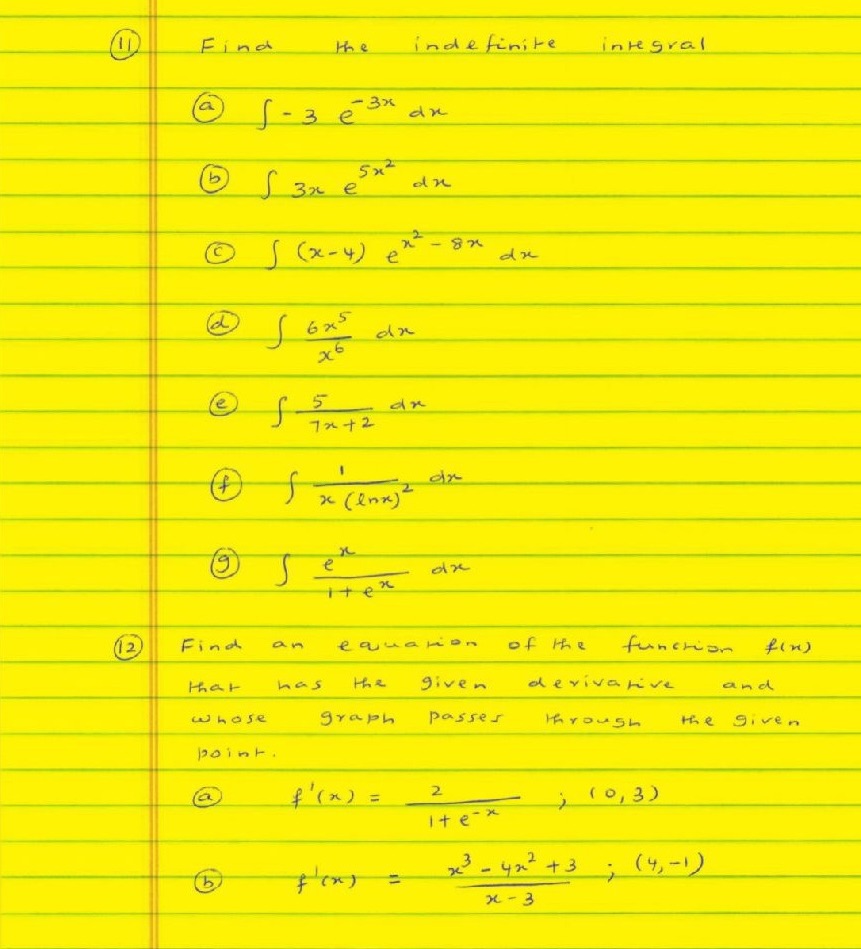 ⑪ Find the indefinite integral
ⓐ ∫ -3 e^{-3x} dx
ⓑ ∫ 3x e^{5x²} dx
ⓒ ∫ (x-4) e^{x² - 8x} dx
ⓓ ∫ 6x⁵/x⁶ dx
ⓔ ∫ 5/(7x+2) dx
ⓕ ∫ 1/(x (lnx)²) dx
ⓖ ∫ e^x/(1+e^x) dx
⑫ Find an equation of the function f(x)
that has the given derivative and
whose graph passes through the given
point.
ⓐ f'(x) = 2/(1+e^{-x}) ; (0,3)
ⓑ f'(x) = (x³ - 4x² + 3)/(x-3) ; (4,-1)